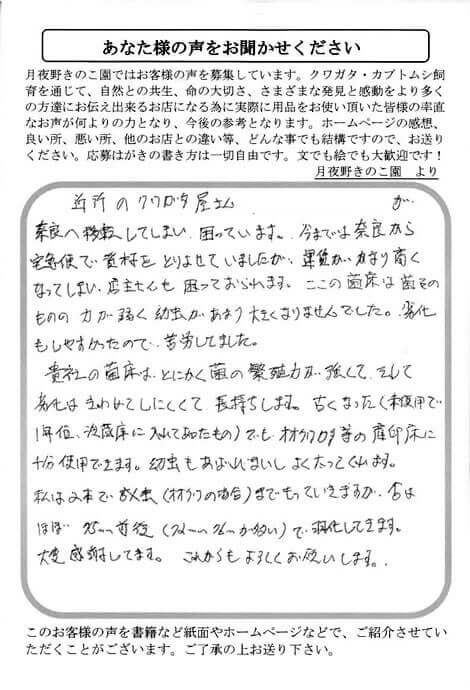 あなた様の声をお聞かせください
月夜野きのこ園ではお客様の声を募集しています。クワガタ・カブトムシ飼
育を通じて、自然との共生、命の大切さ、さまざまな発見と感動をより多く
の方達にお伝え出来るお店になる為に実際に用品をお使い頂いた皆様の率直
なお声が何よりの力となり、今後の参考となります。ホームページの感想、
良い所、悪い所、他のお店との違い等、どんな事でも結構ですので、お送り
ください。応募はがきの書き方は一切自由です。文でも絵でも大歓迎です！
月夜野きのこ園　より
近所のクワガタ屋さん　が
奈良へ移転してしまい、困っています。今までは奈良から
宅急便で資材をとりよせていましたが、運賃が、かなり高く
なってしまい、店主さんも困っておられます。ここの菌床は菌その
ものの力が弱く幼虫があまり大きくなりませんでした。劣化
もしやすかったので、苦労してました。
貴社の菌床は、とにかく菌の繁殖力が強くて、そして
劣化はきわめてしにくくて長持ちします。古くなった（未使用で
1年位、冷蔵庫に入れてあったもの）でもオオクワガタ等の産卵床に
十分使用できます。幼虫もあばれないしよく太ってくれます。
私は2本で成虫（オオクワの場合）までもっていきますが、♂は
ほぼ 75mm前後（72mm～76mmが多い）で羽化してきます。
大変感謝してます。これからもよろしくお願いします。
このお客様の声を書籍など紙面やホームページなどで、ご紹介させてい
ただくことがございます。ご了承の上お送り下さい。